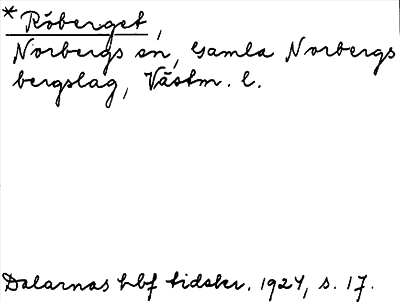 * Röberget,
Norbergs sn, Gamla Norbergs
bergslag, Västm. l.
Dalarnas hbf tidskr. 1924, s. 17.